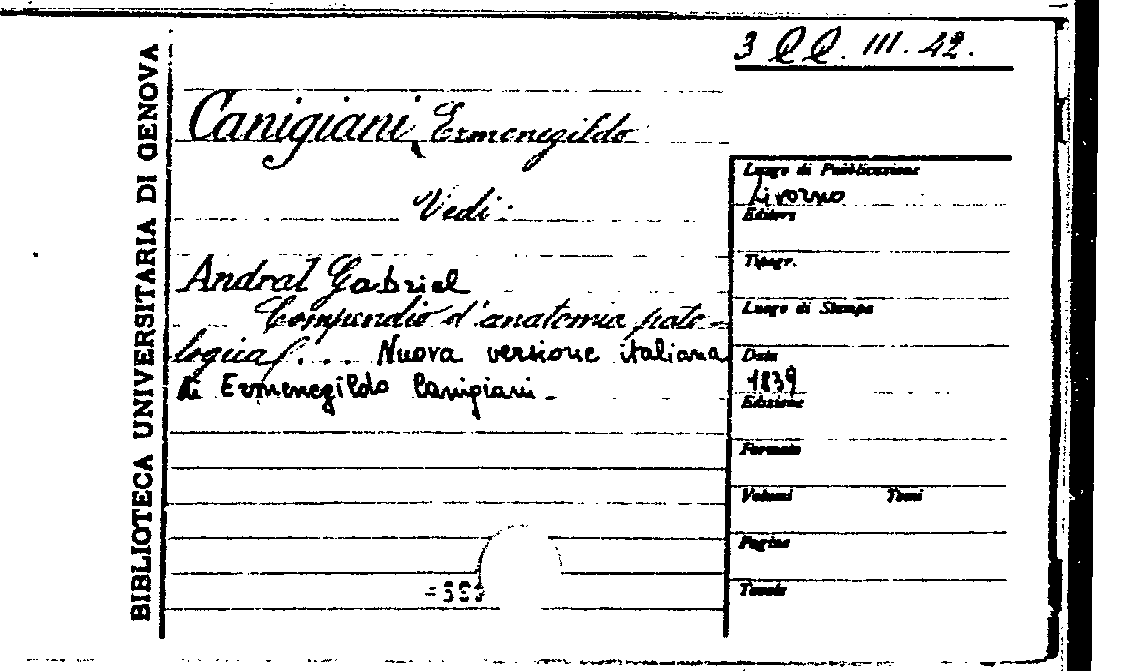 3 QQ. III. 42.
BIBLIOTECA UNIVERSITARIA DI GENOVA
Canigiani, Ermenegildo
Vedi:
Andral Gabriel
Compendio d'anatomia pato-
logica/... Nuova versione italiana
di Ermenegildo Canigiani.
Luogo di Pubblicazione
Livorno
Editore
Tipogr.
Luogo di Stampa
Data
1839
Edizione
Formato
Volumi Tomi
Pagine
Tavole